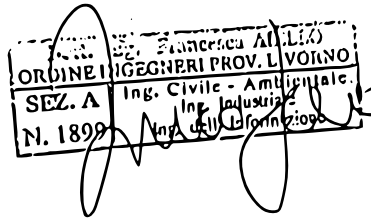 Francesca
ORDINE INGEGNERI PROV. LIVORNO
SEZ. A
N. 1899
Ing. Civile - Ambientale
Ing. Industriale
Ing. dell'Informazione